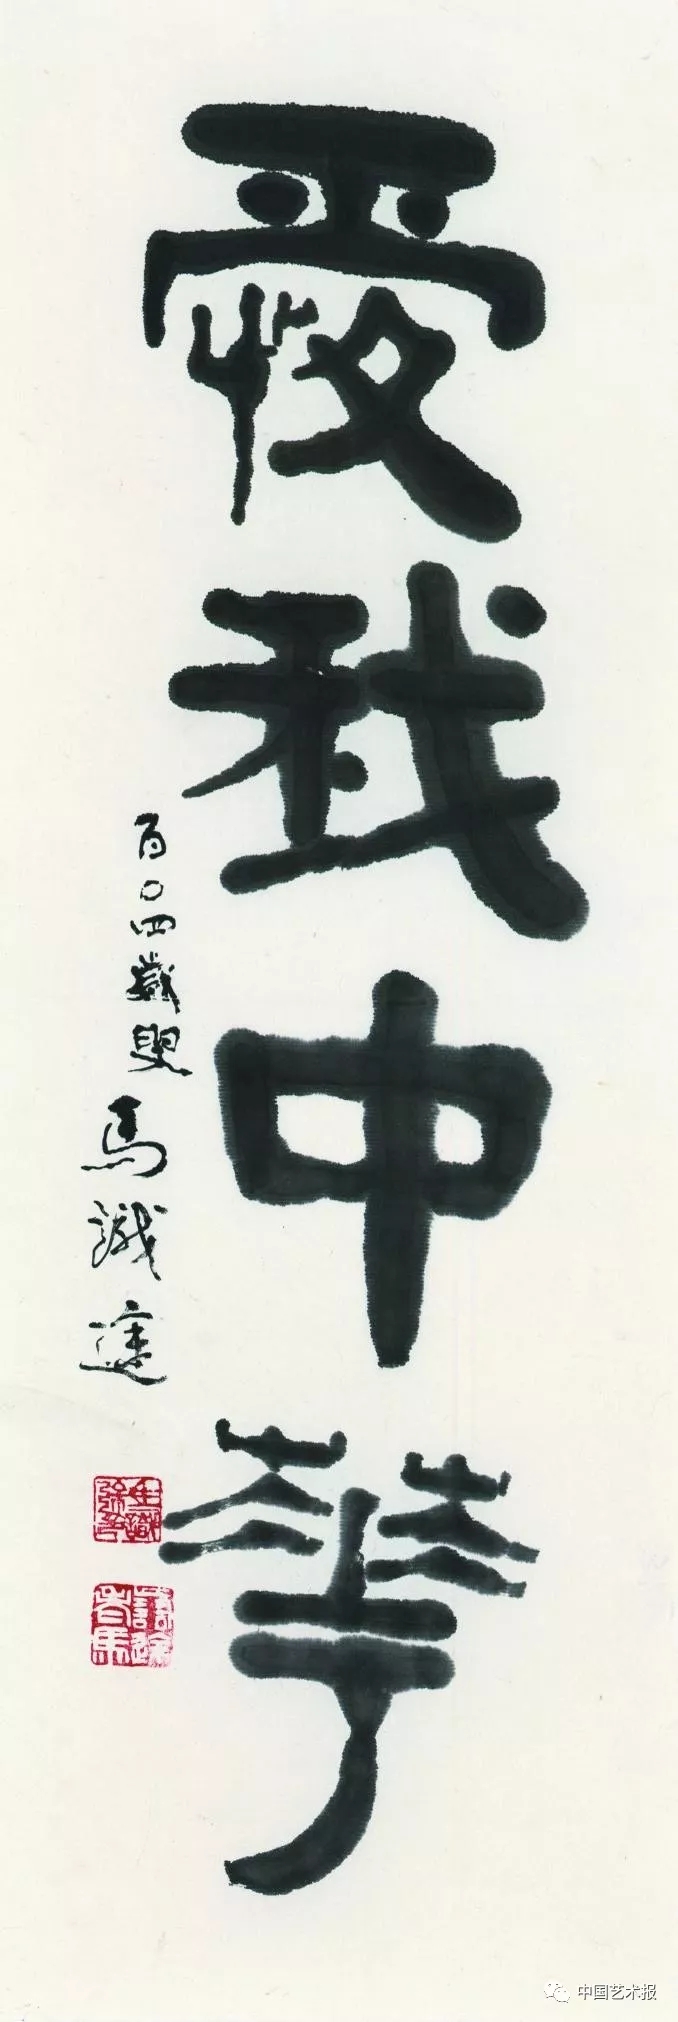 愛我中華
百〇四歲叟
馬識途
中国艺术报